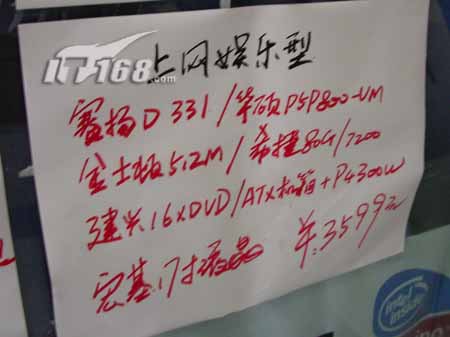 IT168.com
上网娱乐型
赛扬D 331/华硕P5P800-VM
金士顿512M/希捷80G/7200
建兴16XDVD/ATX机箱+P4300W
宏基17寸液晶 ¥:3599元
intel
inside